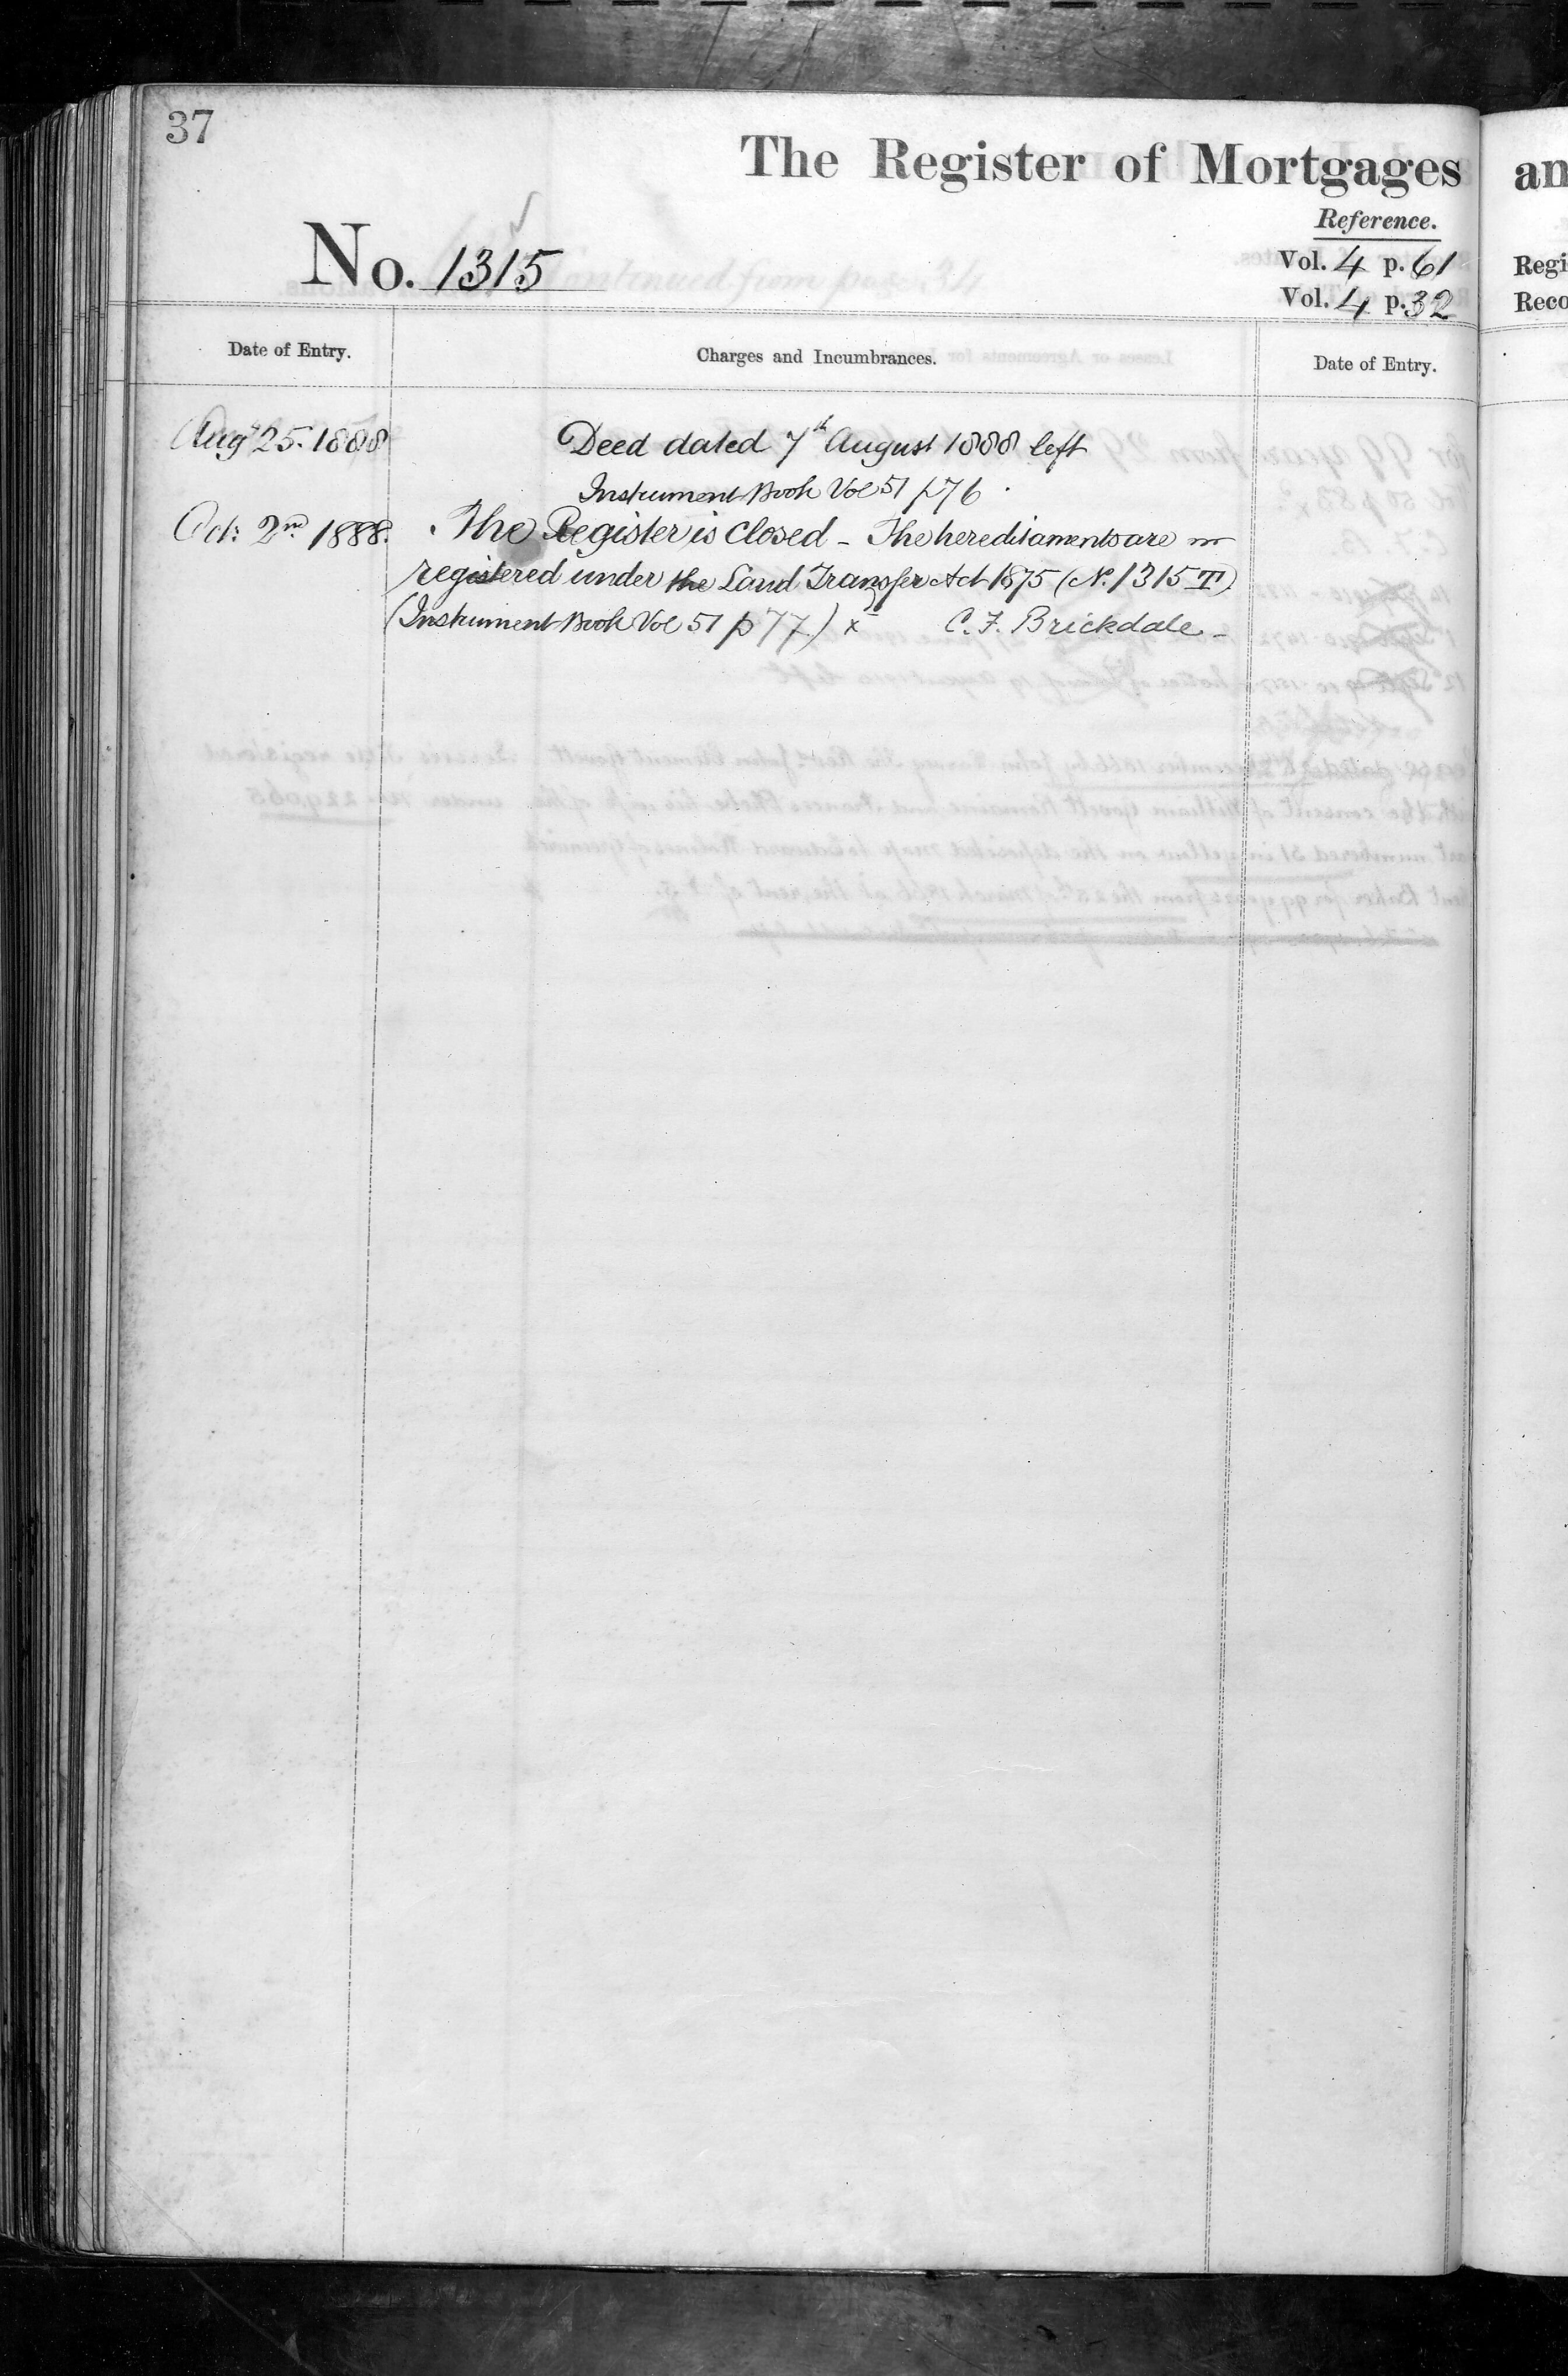 37
The Register of Mortgages
an
Reference.
No. 1315
Vol. 4 p. 61
Regi
Vol. 4 p. 32
Reco
Date of Entry.
Charges and Incumbrances.
Date of Entry.
Augt 25. 1888
Deed dated 7th August 1888 left
Instrument Book Vol 51 p 76
Oct: 2nd 1888.
The Register is closed - The hereditaments are
registered under the Land Transfer Act 1875 (No. 1315 T)
(Instrument Book Vol 51 p 77.) x C. F. Brickdale -